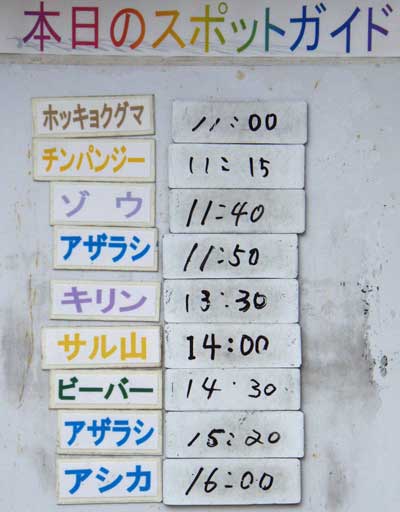 本日のスポットガイド
ホッキョクグマ 11:00
チンパンジー 11:15
ゾウ 11:40
アザラシ 11:50
キリン 13:30
サル山 14:00
ビーバー 14:30
アザラシ 15:20
アシカ 16:00